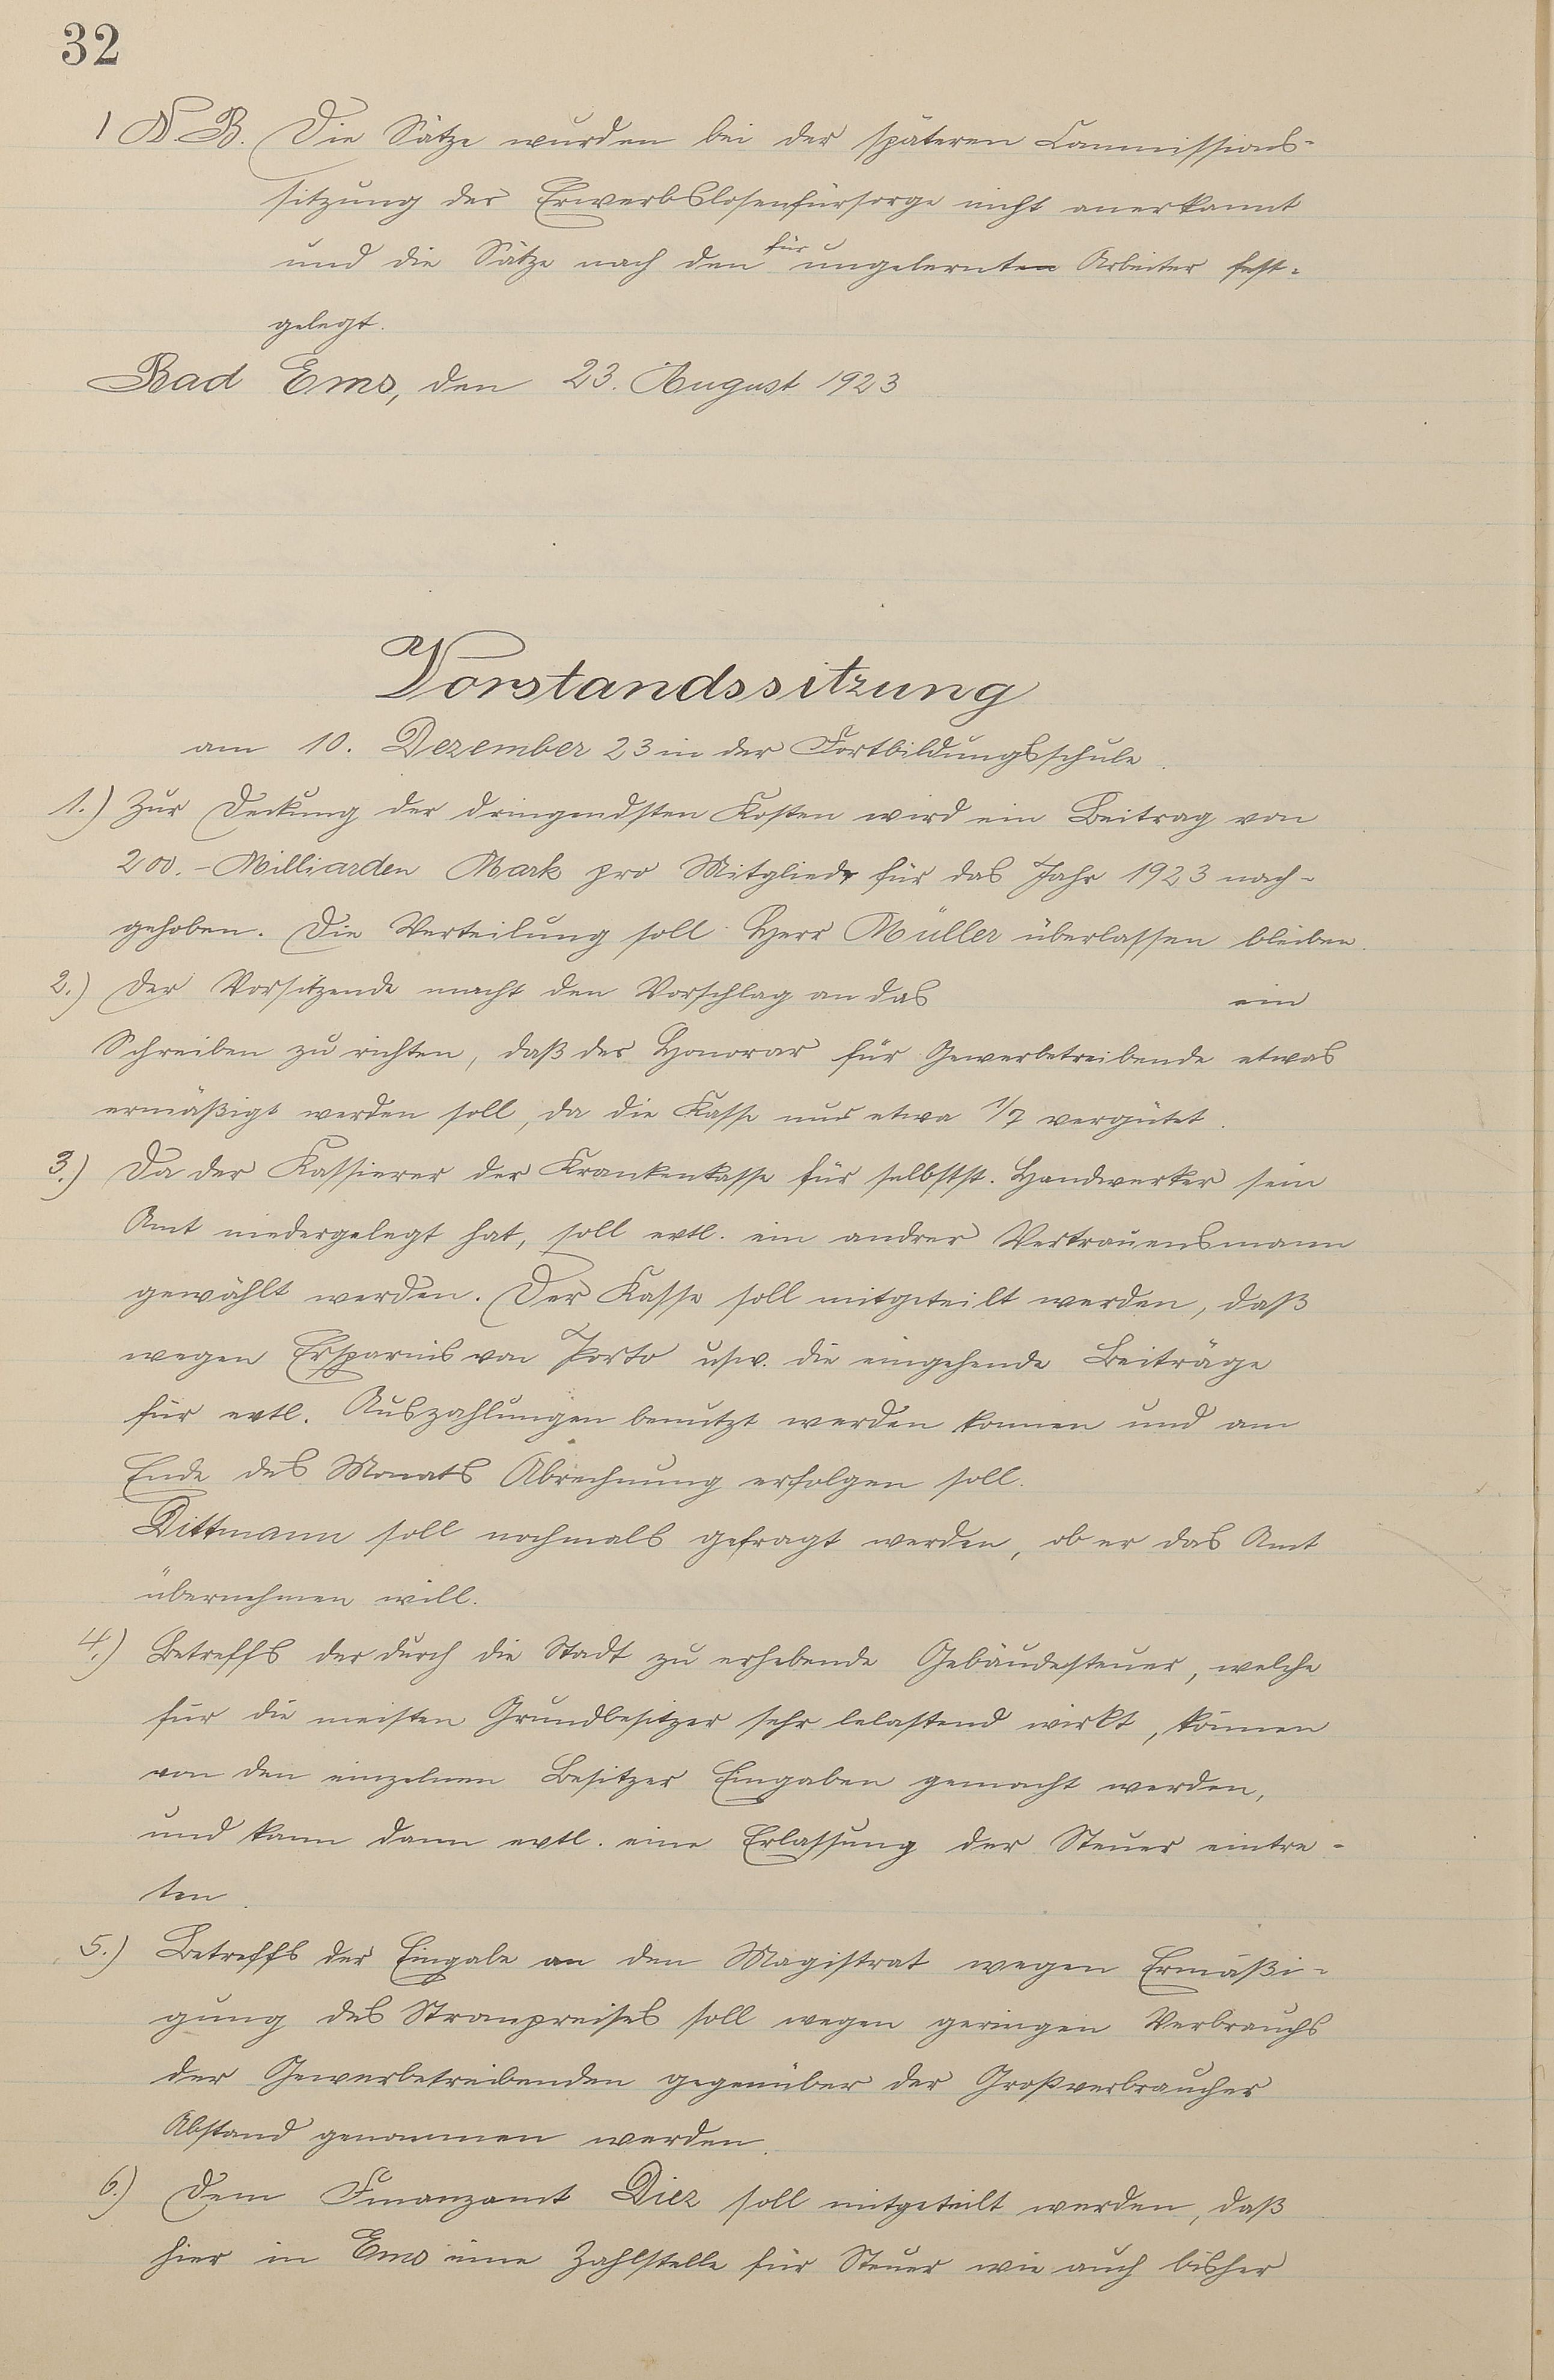 32
1 N.B. Die Sätze wurden bei der späteren Commissions-
sitzung der Erwerbslosenfürsorge nicht anerkannt
und die Sätze nach den für ungelernten Arbeiter fest-
gelegt.
Bad Ems, den 23. August 1923
Vorstandssitzung
am 10. Dezember 23 in der Fortbildungsschule.
1.) Zur Deckung der dringendsten Kosten wird ein Beitrag von
200.- Milliarden Mark pro Mitglied für das Jahr 1923 nach-
gehoben. Die Verteilung soll Herr Müller überlassen bleiben.
2.) Der Vorsitzende macht den Vorschlag an das ein
Schreiben zu richten, daß das Honorar für Gewerbetreibende etwas
ermäßigt werden soll, da die Kasse nur etwa 1/7 vergütet.
3.) Da der Kassierer der Krankenkasse für selbstst. Handwerker sein
Amt niedergelegt hat, soll evtl. ein andrer Vertrauensmann
gewählt werden. Der Kasse soll mitgeteilt werden, daß
wegen Ersparnis von Porto usw. die eingehende Beiträge
für evtl. Auszahlungen benutzt werden konnen und am
Ende des Monats Abrechnung erfolgen soll.
Dittmann soll nochmals gefragt werden, ob er das Amt
übernehmen will.
4.) Betreffs der durch die Stadt zu erhebende Gebäudesteuer, welche
für die meisten Grundbesitzer sehr belastend wirkt, können
von den einzelnen Besitzer Eingaben gemacht werden,
und kann dann evtl. eine Erlassung der Steuer eintre-
ten.
5.) Betreffs der Eingabe an den Magistrat wegen Ermäßi-
gung des Strompreises soll wegen geringen Verbrauchs
der Gewerbetreibenden gegenüber der Großverbraucher
Abstand genommen werden.
6.) Dem Finanzamt Diez soll mitgeteilt werden, daß
hier in Ems eine Zahlstelle für Steuer wie auch bisher